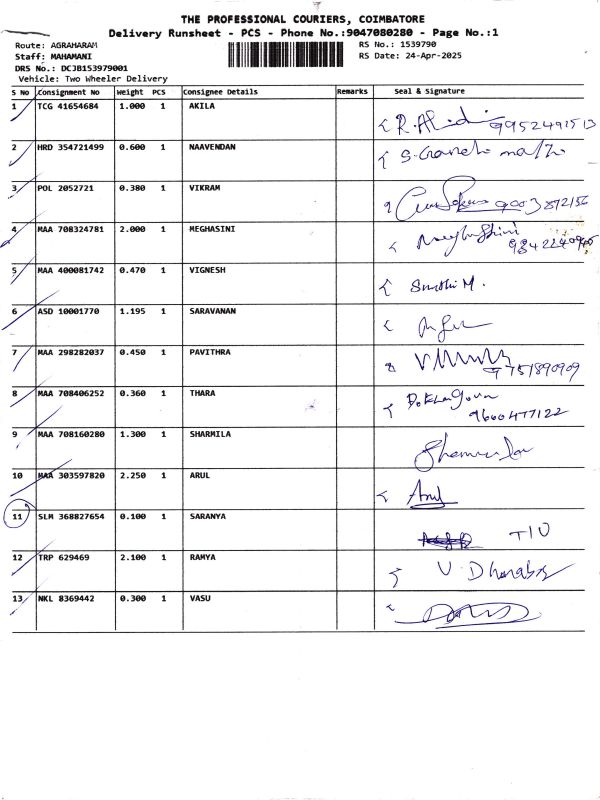 THE PROFESSIONAL COURIERS, COIMBATORE
Delivery Runsheet - PCS - Phone No.:9047080280 - Page No.:1
Route: AGRAHARAM
RS No.: 1539790
Staff: MAHAMANI
RS Date: 24-Apr-2025
DRS No.: DCJB153979001
Vehicle: Two Wheeler Delivery
S No Consignment No Weight PCS Consignee Details Remarks Seal & Signature
1 TCG 41654684 1.000 1 AKILA
9952491513
2 HRD 354721499 0.600 1 NAAVENDAN
3 POL 2052721 0.380 1 VIKRAM
9003872156
4 MAA 708324781 2.000 1 MEGHASINI
5 MAA 400081742 0.470 1 VIGNESH
Sruthi M.
6 ASD 10001770 1.195 1 SARAVANAN
7 MAA 298282037 0.450 1 PAVITHRA
9751890909
8 MAA 708406252 0.360 1 THARA
9600477122
9 MAA 708160280 1.300 1 SHARMILA
10 MAA 303597820 2.250 1 ARUL
Arul
11 SLM 368827654 0.100 1 SARANYA
TIU
12 TRP 629469 2.100 1 RAMYA
13 NKL 8369442 0.300 1 VASU